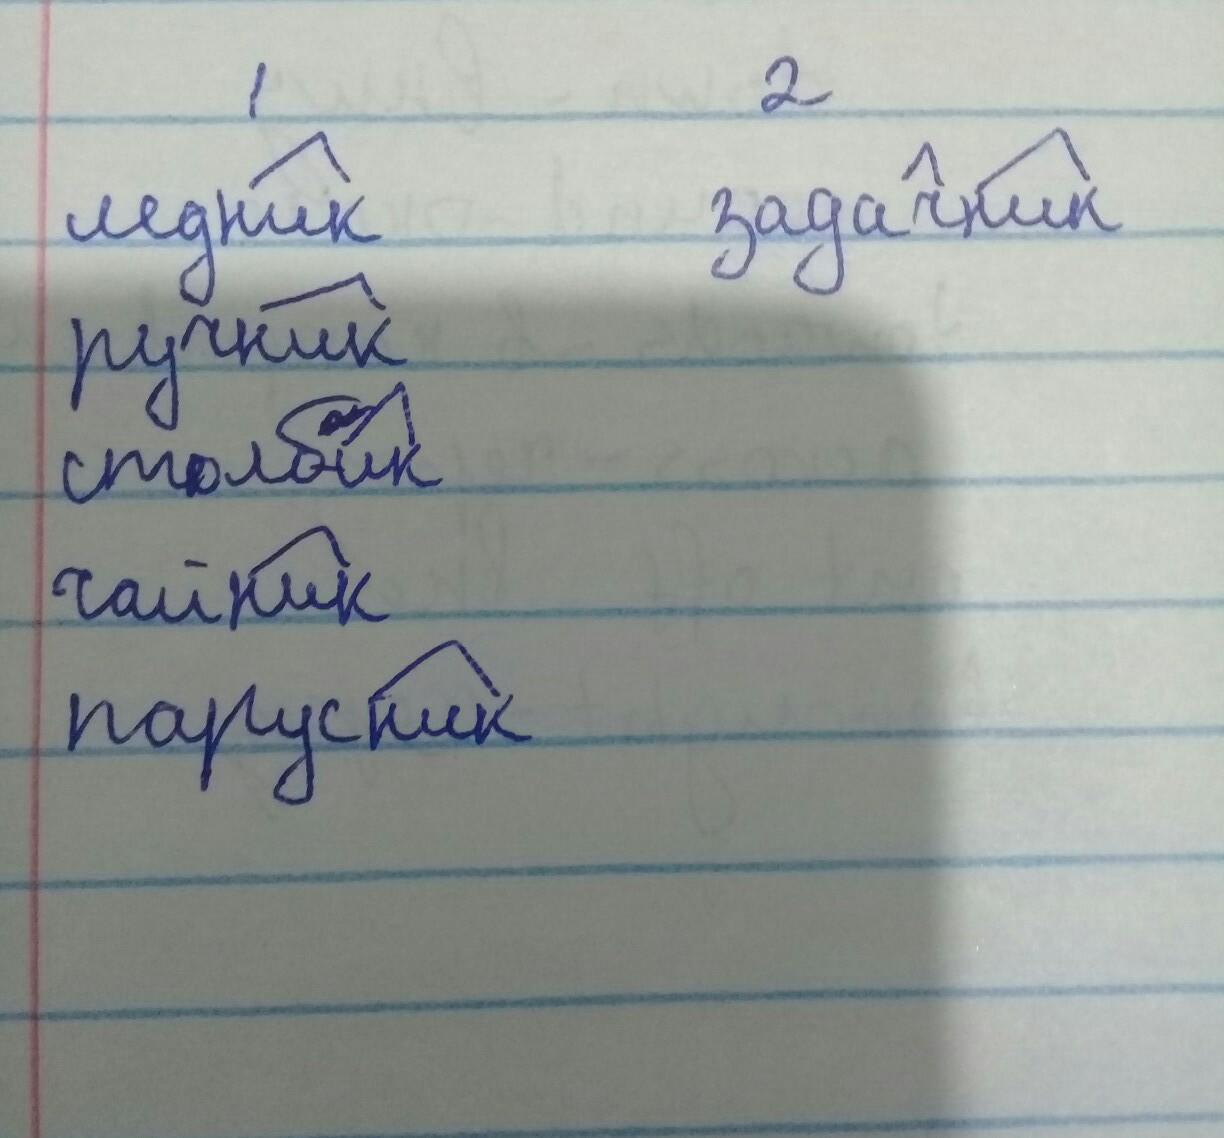 1 2
ледник задачник
ручник
столбик
чайник
парусник